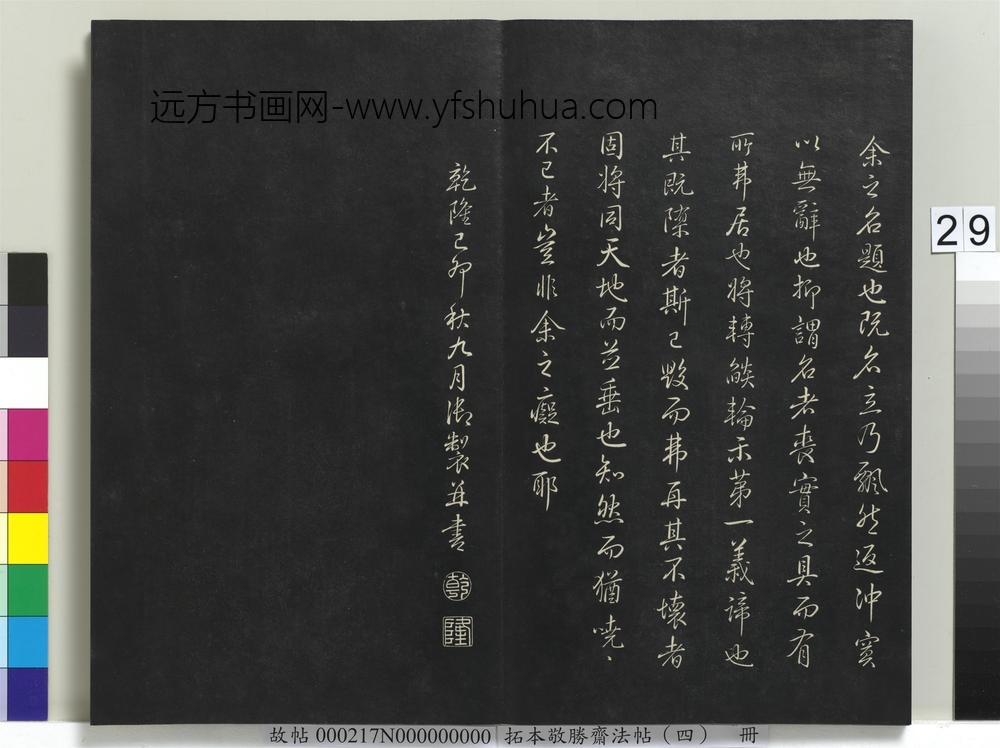 远方书画网-www.yfshuhua.com
余之名題也既名立乃飄然返沖寞
以無辭也抑謂名者喪實之具而有
所弗居也將轉燄輪示第一義諦也
其既隳者斯已毀而弗再其不壞者
固將同天地而並垂也知然而猶嘵〻
不已者豈非余之癡也耶
乾隆己卯秋九月御製并書
乾
隆
29
故帖 000217N000000000 拓本敬勝齋法帖（四） 冊